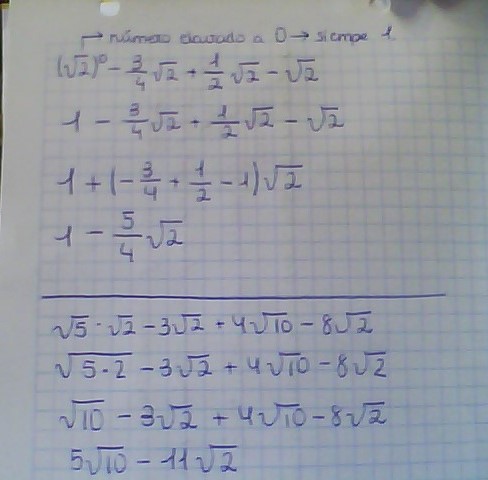 ↱ número elevado a 0 → siempre 1.
(√2)⁰ - 3/4 √2 + 1/2 √2 - √2
1 - 3/4 √2 + 1/2 √2 - √2
1 + (-3/4 + 1/2 - 1) √2
1 - 5/4 √2
√5 · √2 - 3√2 + 4√10 - 8√2
√(5·2) - 3√2 + 4√10 - 8√2
√10 - 3√2 + 4√10 - 8√2
5√10 - 11√2